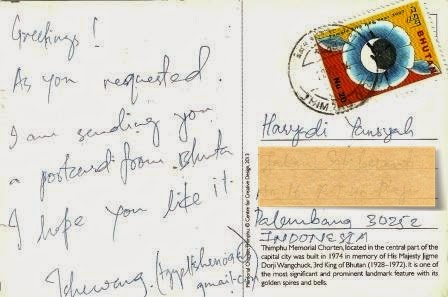 Greetings!
As you requested.
I am sending you
a postcard from Bhuta
I hope you like it.
Haryadi Yansyah
Palembang 30252
INDONESIA
BHUTAN
THIM
Memorial Chorten, Thimphu © Centre for Creative Design, 2013
Thimphu Memorial Chorten, located in the central part of the
capital city was built in 1974 in memory of His Majesty Jigme
Dorji Wangchuck, 3rd King of Bhutan (1928–1972). It is one of
the most significant and prominent landmark feature with its
golden spires and bells.